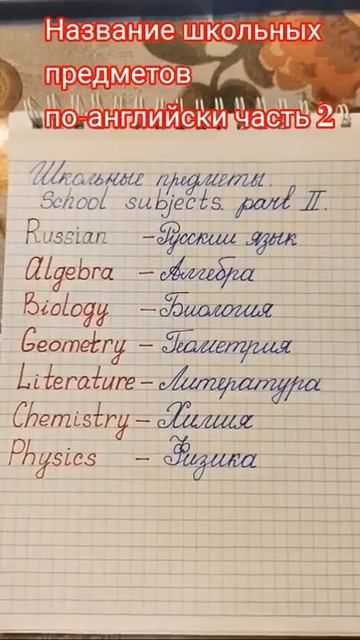 Название школьных
предметов
по-английски часть 2
Школьные предметы.
School subjects. part II.
Russian - Русский язык
Algebra - Алгебра
Biology - Биология
Geometry - Геометрия
Literature - Литература
Chemistry - Химия
Physics - Физика